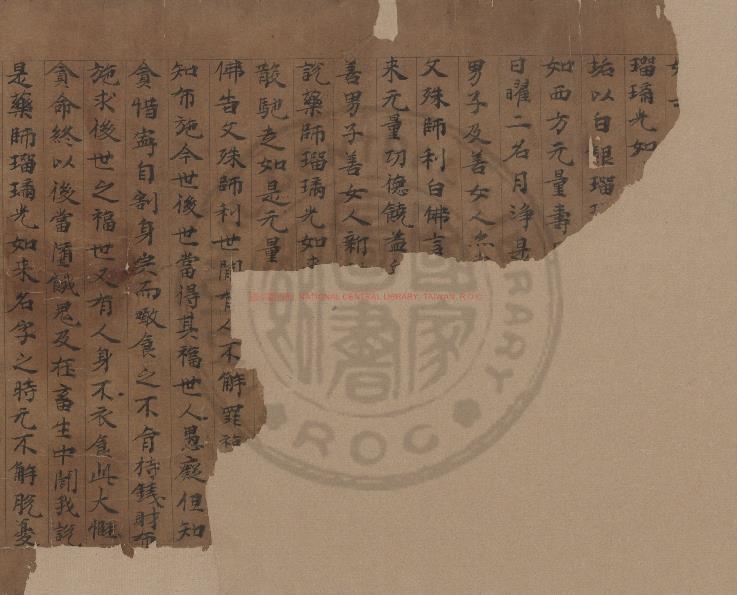 瑠璃光如
垢以白銀瑠
如西方元量壽
日曜二名月淨是
男子及善女人亦
文殊師利白佛言
来元量功德饒益
善男子善女人新
說藥師瑠璃光如来
散馳走如是元量
佛告文殊師利世閒有人不解罪福
知布施今世後世當得其福世人愚癡但知
貪惜寧自割身宍而噉食之不肯持錢財布
施求後世之福世又有人身不衣食此大慳
貪命終以後當墮餓鬼及在畜生中聞我說
是藥師瑠璃光如来名字之時元不解脫憂
NATIONAL CENTRAL LIBRARY, TAIWAN, R.O.C
國家圖書
LIBRARY
ROC